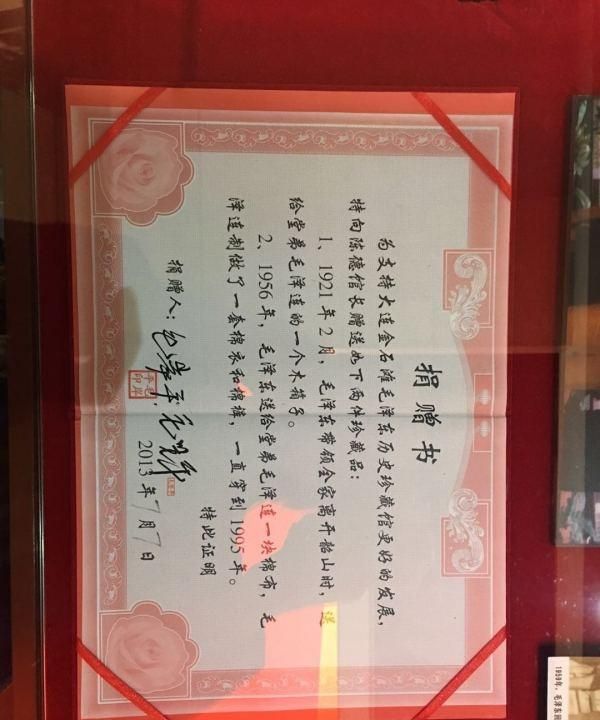 捐赠书
为支持大连金石滩毛泽东历史珍藏馆更好的发展，
特向陈德馆长赠送如下两件珍藏品：
1、1921年2月，毛泽东带领全家离开韶山时，送
给堂弟毛泽连的一个木箱子。
2、1956年，毛泽东送给堂弟毛泽连一块棉布，毛
泽连制做了一套棉衣和棉裤，一直穿到1995年。
特此证明
捐赠人：
2013年7月7日
1959年，毛泽东回